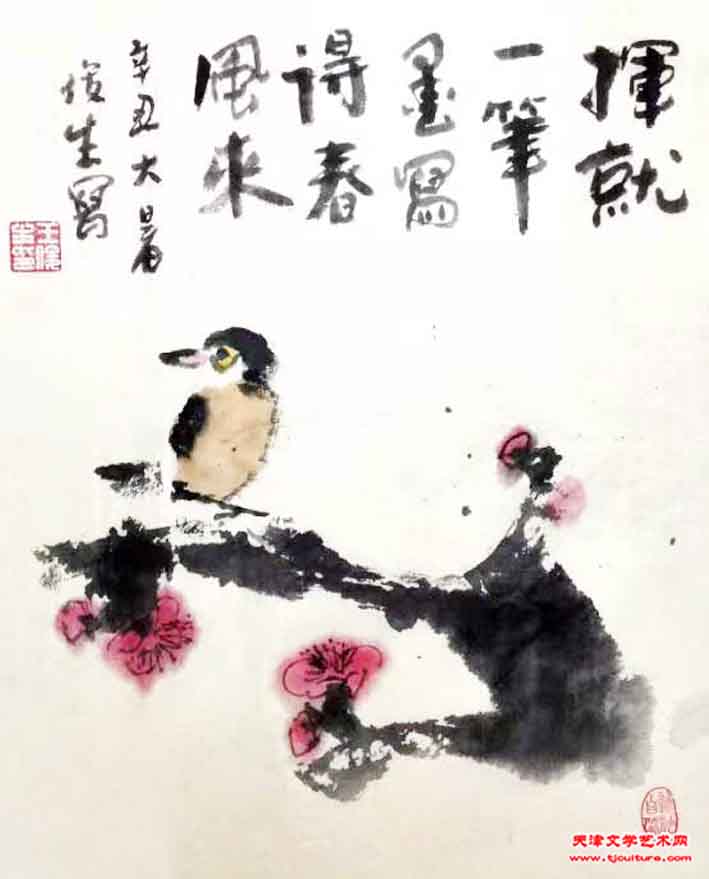 揮就
一筆
墨寫
得春
風來
辛丑大暑
俊生寫
天津文学艺术网
www.tjculture.com